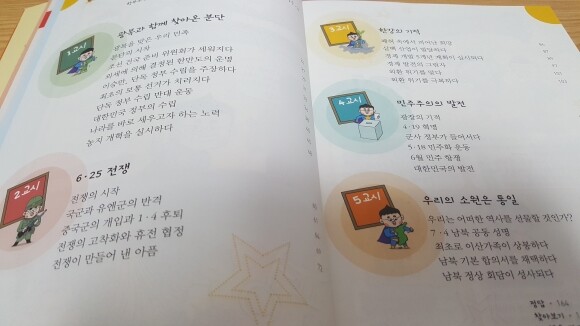 1교시
광복과 함께 찾아온 분단
광복을 맞은 우리 민족
분단의 시작
조선 건국 준비 위원회가 세워지다
외세에 의해 결정된 한반도의 운명
이승만, 단독 정부 수립을 주장하다
최초의 보통 선거가 치러지다
단독 정부 수립 반대 운동
대한민국 정부의 수립
나라를 바로 세우고자 하는 노력
농지 개혁을 실시하다
2교시
6·25 전쟁
전쟁의 시작
국군과 유엔군의 반격
중국군의 개입과 1·4 후퇴
전쟁의 고착화와 휴전 협정
전쟁이 만들어 낸 아픔
3교시
한강의 기적
폐허 속에서 피어난 희망
삼백 산업이 발달하다
경제 개발 5개년 계획이 실시되다
경제 발전의 그림자
외환 위기를 맞다
외환 위기를 극복하다
4교시
민주주의의 발전
광장의 기적
4·19 혁명
군사 정부가 들어서다
5·18 민주화 운동
6월 민주 항쟁
대한민국의 발전
5교시
우리의 소원은 통일
우리는 어떠한 역사를 선물할 것인가?
7·4 남북 공동 성명
최초로 이산가족이 상봉하다
남북 기본 합의서를 채택하다
남북 정상 회담이 성사되다
정답·164
찾아보기·1